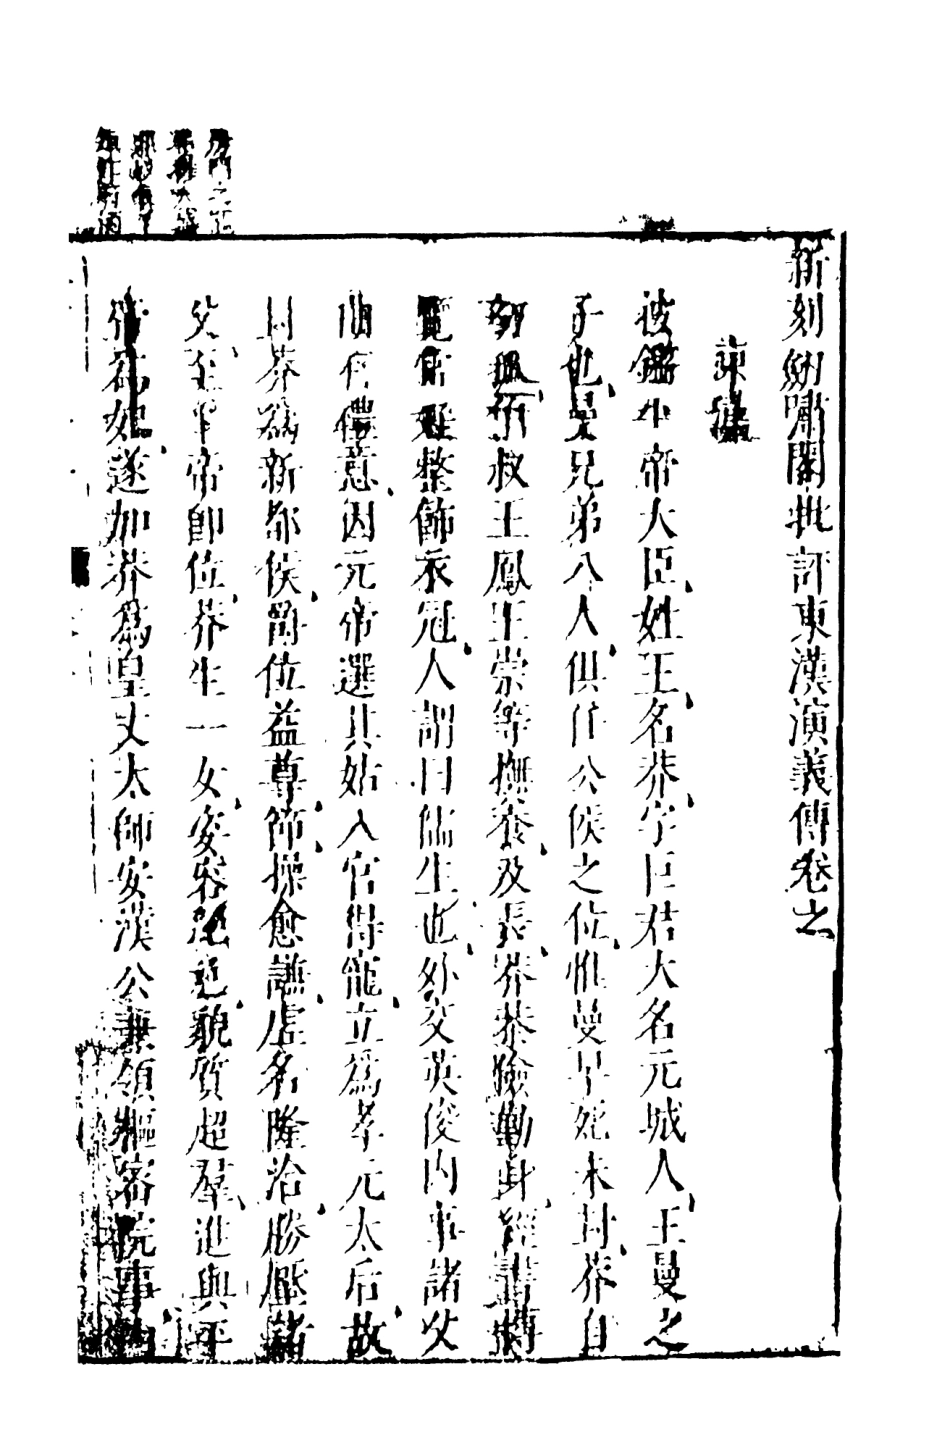 新刻劍嘯閣批評東漢演義傳卷之
東漢
後鑑平帝大臣姓王名莽字巨君大名元城人王曼之
子也曼兄弟八人俱仕公侯之位惟曼早死未封莽自
幼孤伯叔王鳳王崇等撫養及長莽恭儉勤身經書博
覽 整飾衣冠人謂曰儒生也外交英俊內事諸父
曲有禮意因元帝選其姑入宮得寵立為孝元太后故
封莽為新都侯爵位益尊節操愈謙虛名隆洽勝壓諸
父至平帝即位莽生一女姿容絕色貌質超羣進與平
帝為妃遂加莽為皇丈太師安漢公兼領樞密院事